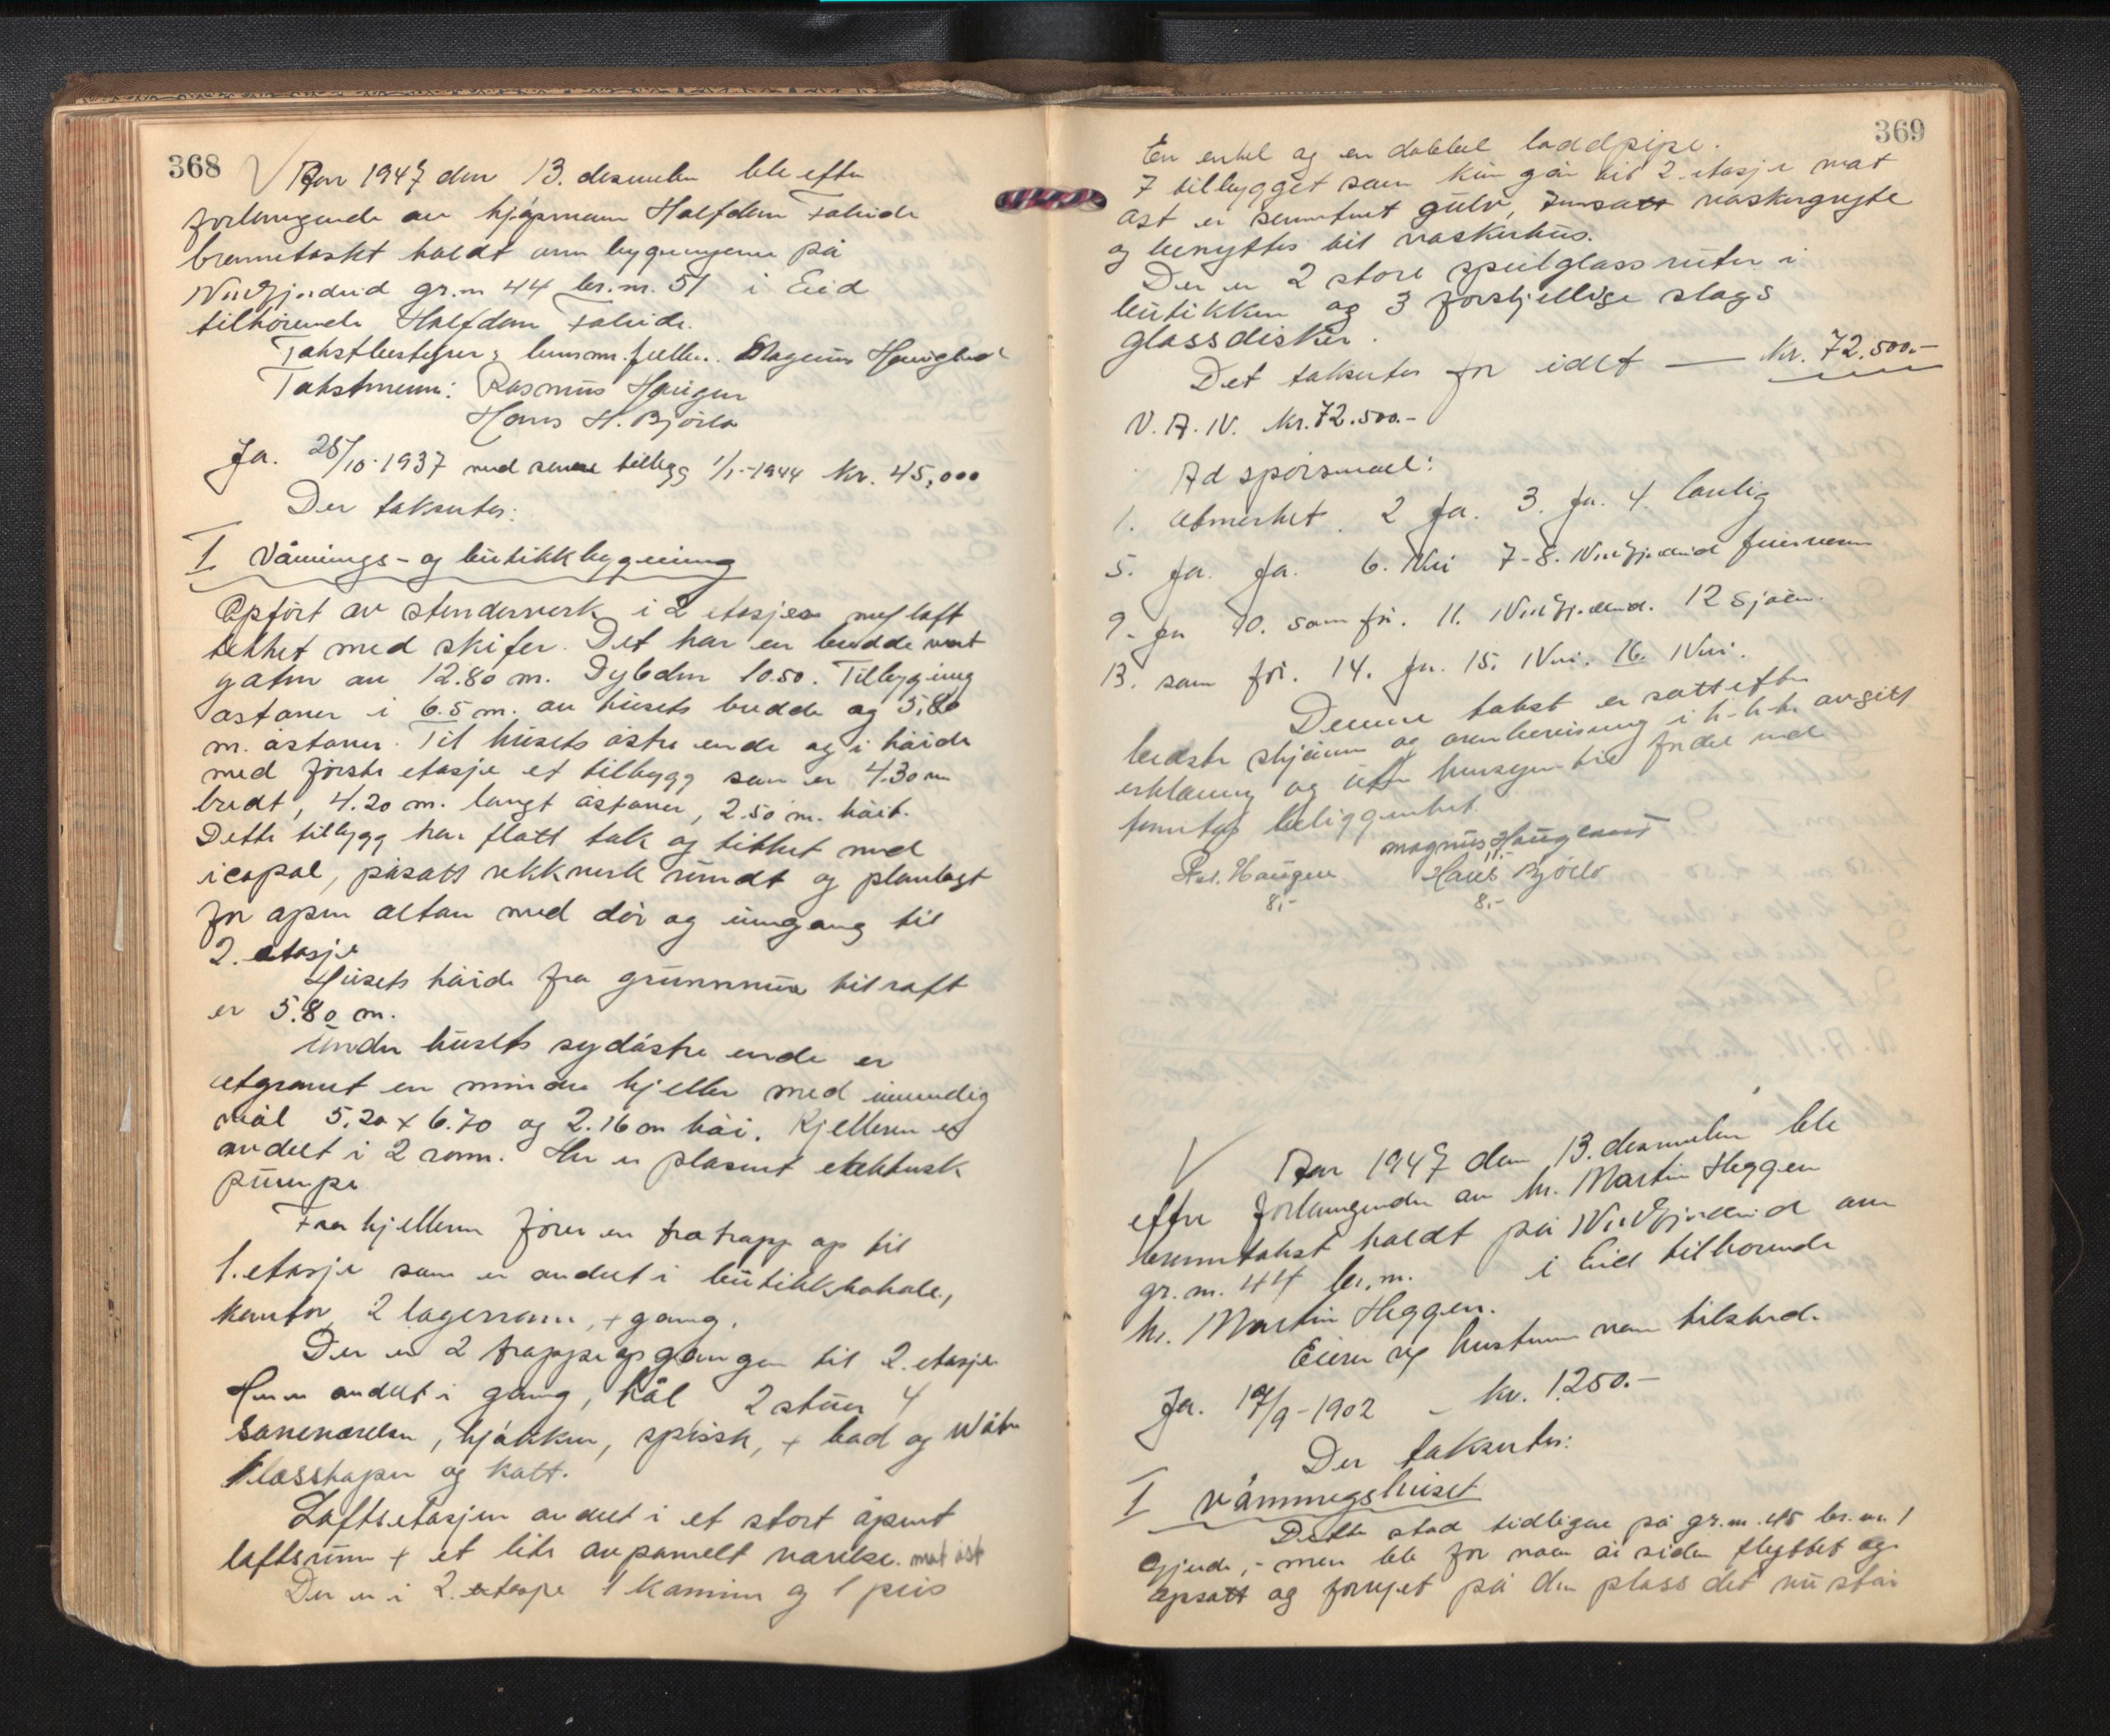 368
Aar 1947 den 13. desember ble efter
forlangende av kjøpmann Halfdan Taleide
branntakst holdt over bygningene på
Nordfjordeid gr.nr. 44 br.nr. 51 i Eid
tilhørende Halfdan Taleide.
Takstbestyrer: lensm. fullm. Magnus Haugland
Takstmenn: Rasmus Haugen
Hans H. Bjørlo
Ja. 25/10-1937 med senere tillegg 1/1-1944 kr. 45,000
Der takseres:
I Vånings- og butikkbygning
Opført av stenderverk i 2 etasjer med loft
tekket med skifer. Det har en bredde mot
gaten av 12.80 m. Dybden 10.50. Tilbygning
østover i 6.5 m. av husets bredde og 5,80
m. østover. Til husets østre ende og i høide
med første etasje et tilbygg som er 4.30 m
bredt, 4.20 m. langt østover, 2.50 m. høit.
Dette tilbygg har flatt tak og tekket med
icopal, påsatt rekkverk rundt og planlagt
for open altan med dør og inngang til
2. etasje
Husets høide fra grunnmur til raft
er 5.80 m.
Under husets sydøstre ende er
utgravet en mindre kjeller med innvendig
mål 5.20 x 6.70 og 2.16 m høi. Kjelleren er
avdelt i 2 rom. Her er plasert elektrisk
pumpe
Fra kjelleren fører en tretrapp op til
1. etasje som er avdelt i butikklokale,
kontor, 2 lagerrom, + gang.
Der er 2 trappeopganger til 2. etasje
Her er avdelt i gang, hål 2 stuer 4
soveværelser, kjøkken, spissk, + bad og Water
Klosstaper og kott.
Loftsetasjen avdelt i et stort åpent
loftsrum + et lite avpanelt værelse mot øst
Der er i 2. etasje 1 kamin og 1 peis
369
En enkel og en dobbel loddpipe.
I tilbygget som kun går til 2. etasje mot
øst er sementert gulv, innsatt vaskegryte
og benyttes til vaskerhus.
Der er 2 store speilglassruter i
butikken og 3 forskjellige slags
glassdisker.
Det takseres for idet — kr. 72.500.-
V.A.N. kr. 72.500.-
Ad spørsmaal:
1. Utmerket. 2 Ja. 3. Ja. 4. Lovlig
5. Ja. Ja. 6. Nei 7-8. Nordfjordeid feiervesen
9. Ja 10. som før. 11. Nordfjordeid. 12 Sjøen.
13. som før. 14. Ja. 15. Nei. 16. Nei.
Denne takst er satt efter
bedste skjønn og overbevisning i h.h.t. avgitt
erklæring og uten hensyn til fordel ved
tomtens beliggenhet.
Magnus Haugland
11.-
Ras. Haugen Hans Bjørlo
8,- 8.-
Aar 1947 den 13. desember ble
efter forlangende av hr. Martin Heggen
branntakst holdt på Nordfjordeid over
gr.nr. 44 br.nr. i Eid tilhørende
hr. Martin Heggen.
Eieren og hustru var tilstede.
Ja. 19/9-1902 - kr. 1250.-
Der takseres:
I Våningshuset
Dette stod tidligere på gr.nr. 45 br.nr. 1
Gjerde, - men ble for noen år siden flyttet og
opsatt og fornyet på den plass det nu står